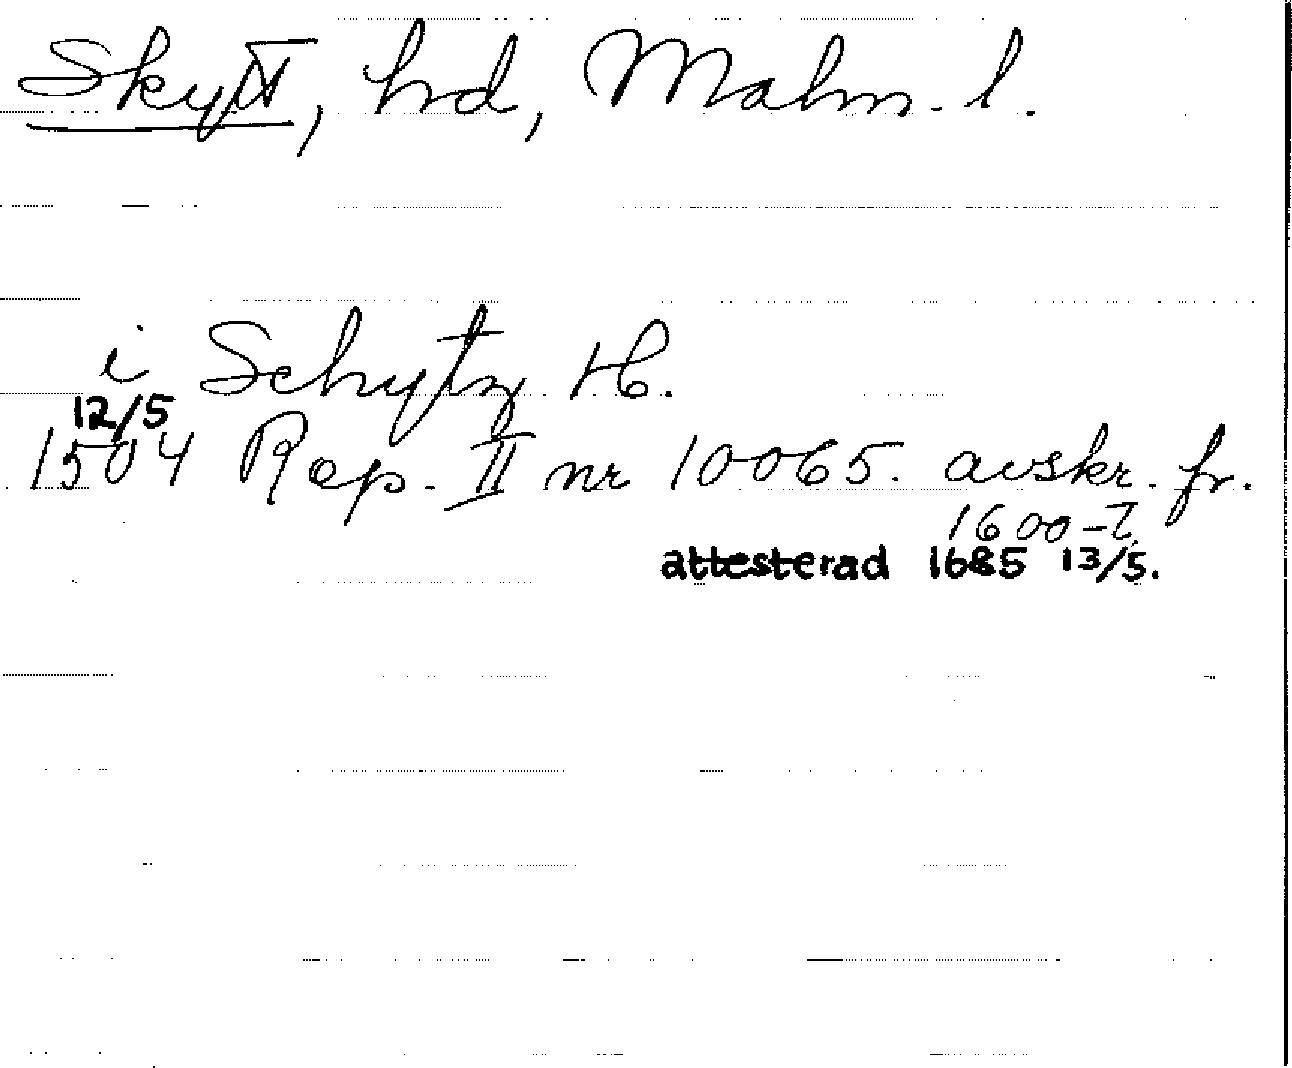 Skytt, hd, Malm. l.
i Schytz H.
12/5
1504 Rep. II nr 10065. avskr. fr.
1600-t.
attesterad 1685 13/5.